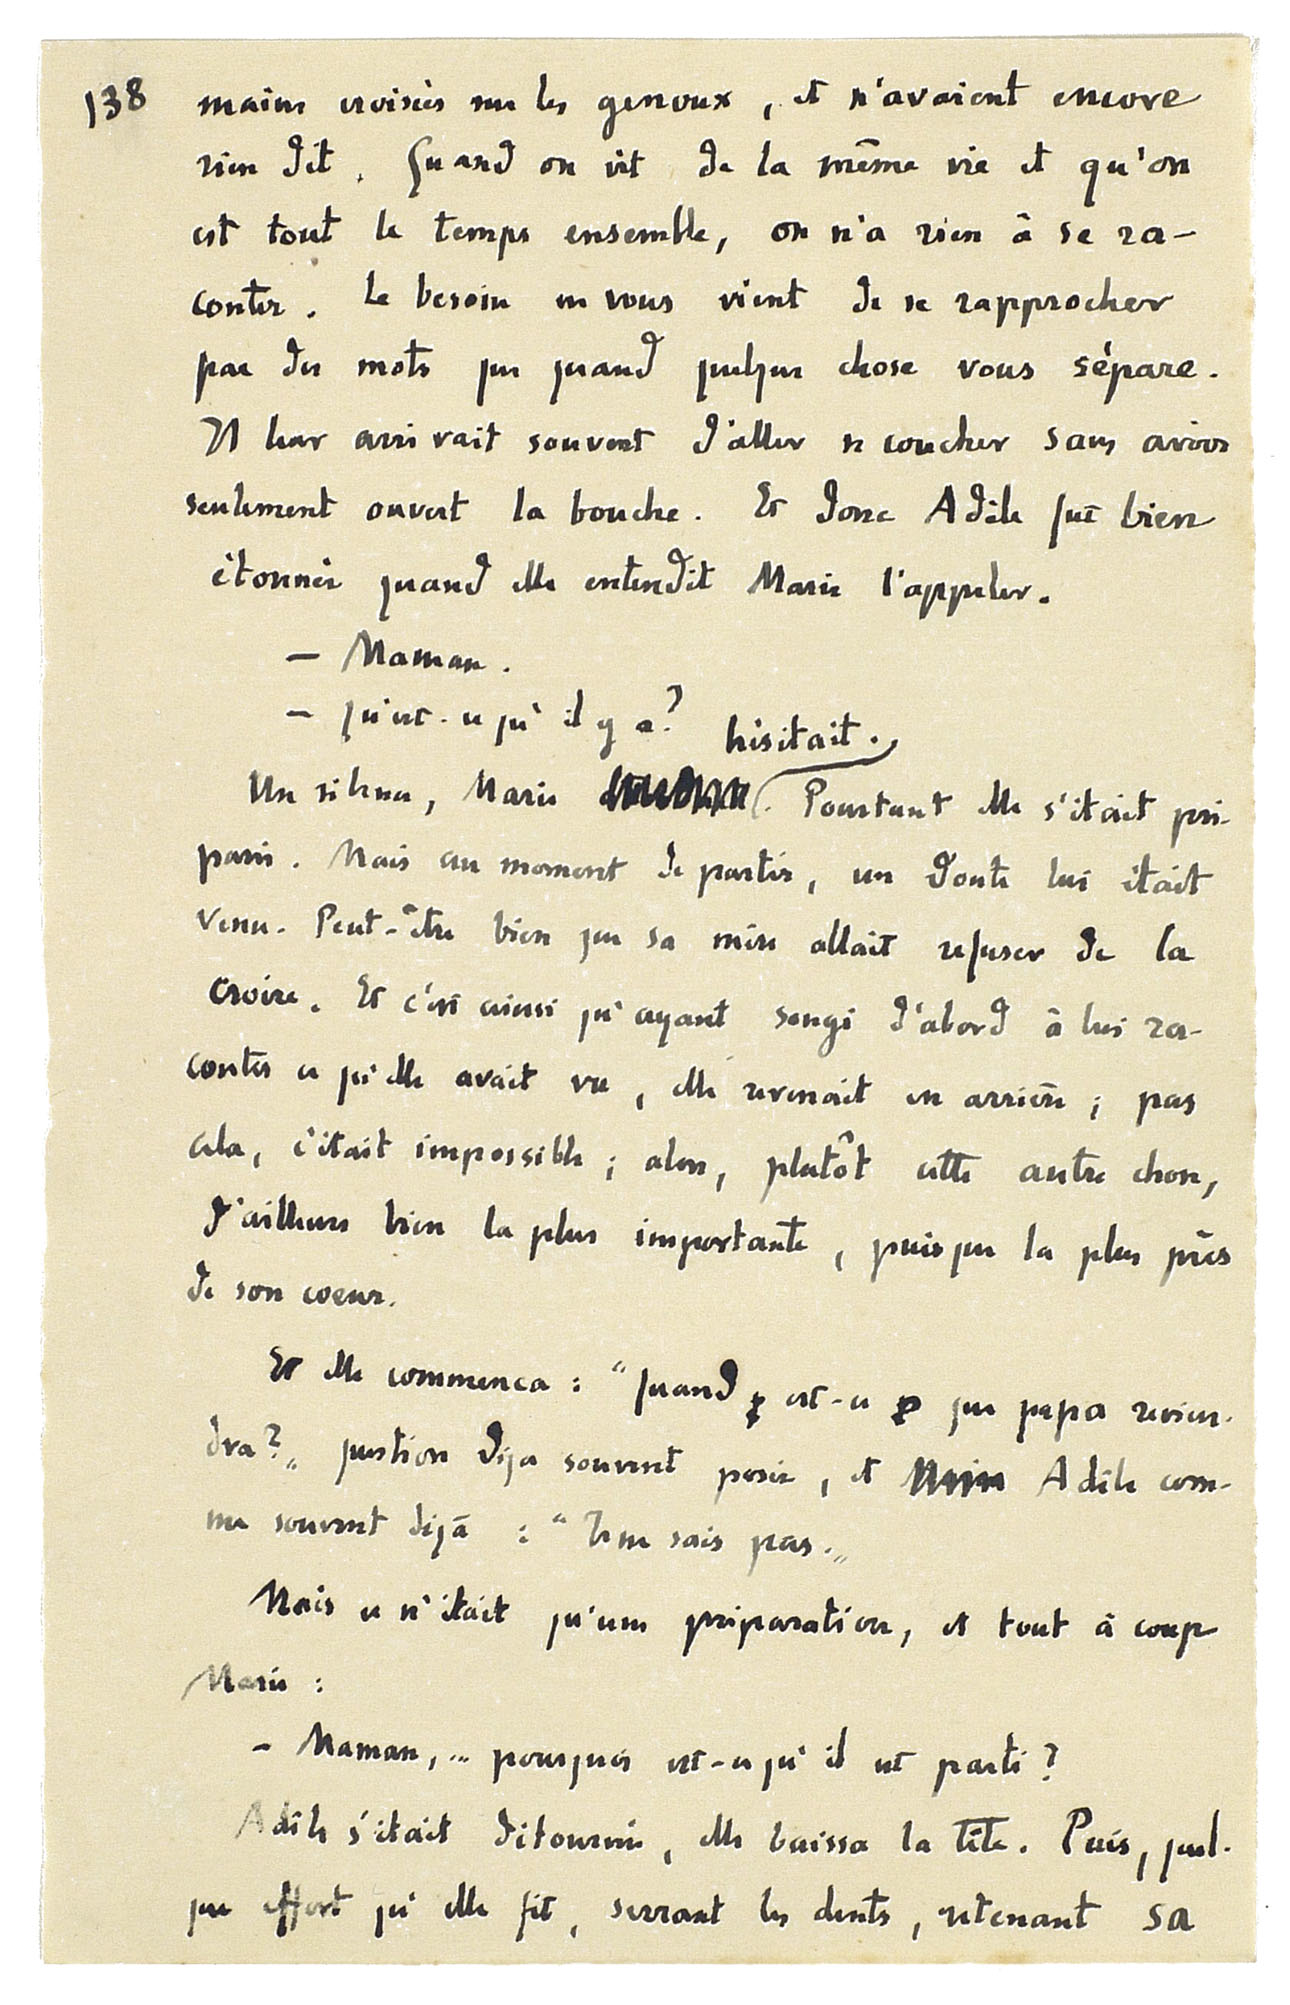 138
mains croisées sur les genoux, et n'avaient encore
rien dit. Quand on vit de la même vie et qu'on
est tout le temps ensemble, on n'a rien à se ra-
conter. Le besoin ne vous vient de se rapprocher
par des mots que quand quelque chose vous sépare.
Il leur arrivait souvent d'aller se coucher sans avoir
seulement ouvert la bouche. Et donc Adèle fut bien
étonnée quand elle entendit Marie l'appeler.
— Maman.
— Qu'est-ce qu'il y a?
hésitait.
Un silence, Marie Pourtant elle s'était pré-
parée. Mais au moment de partir, un doute lui était
venu. Peut-être bien que sa mère allait refuser de la
croire. Et c'est ainsi qu'ayant songé d'abord à lui ra-
conter ce qu'elle avait vu, elle revenait en arrière; pas
cela, c'était impossible; alors, plutôt cette autre chose,
d'ailleurs bien la plus importante, puisque la plus près
de son coeur.
Et elle commenca: "Quand est-ce que papa revien-
dra?" question déjà souvent posée, et Adèle com-
me souvent déjà: "Je ne sais pas."
Mais ce n'était qu'une préparation, et tout à coup
Marie:
— Maman,... pourquoi est-ce qu'il est parti?
Adèle s'était détournée, elle baissa la tête. Puis, quel-
que effort qu'elle fît, serrant les dents, retenant sa